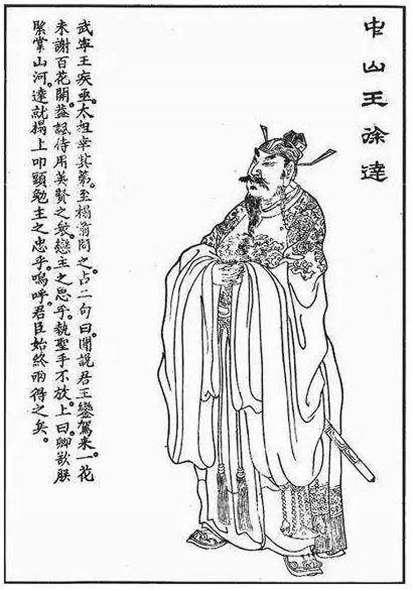 中山王徐達
武寧王疾亟。太祖幸其第。至榻前問之。占二句曰。聞說君王鑾駕來。一花
未謝百花開。用英賢之戀主之思乎。執聖手不放。上曰。卿欲朕
緊掌山河。達就榻上叩頭。勉主之忠乎。嗚呼。君臣始終兩得之矣。